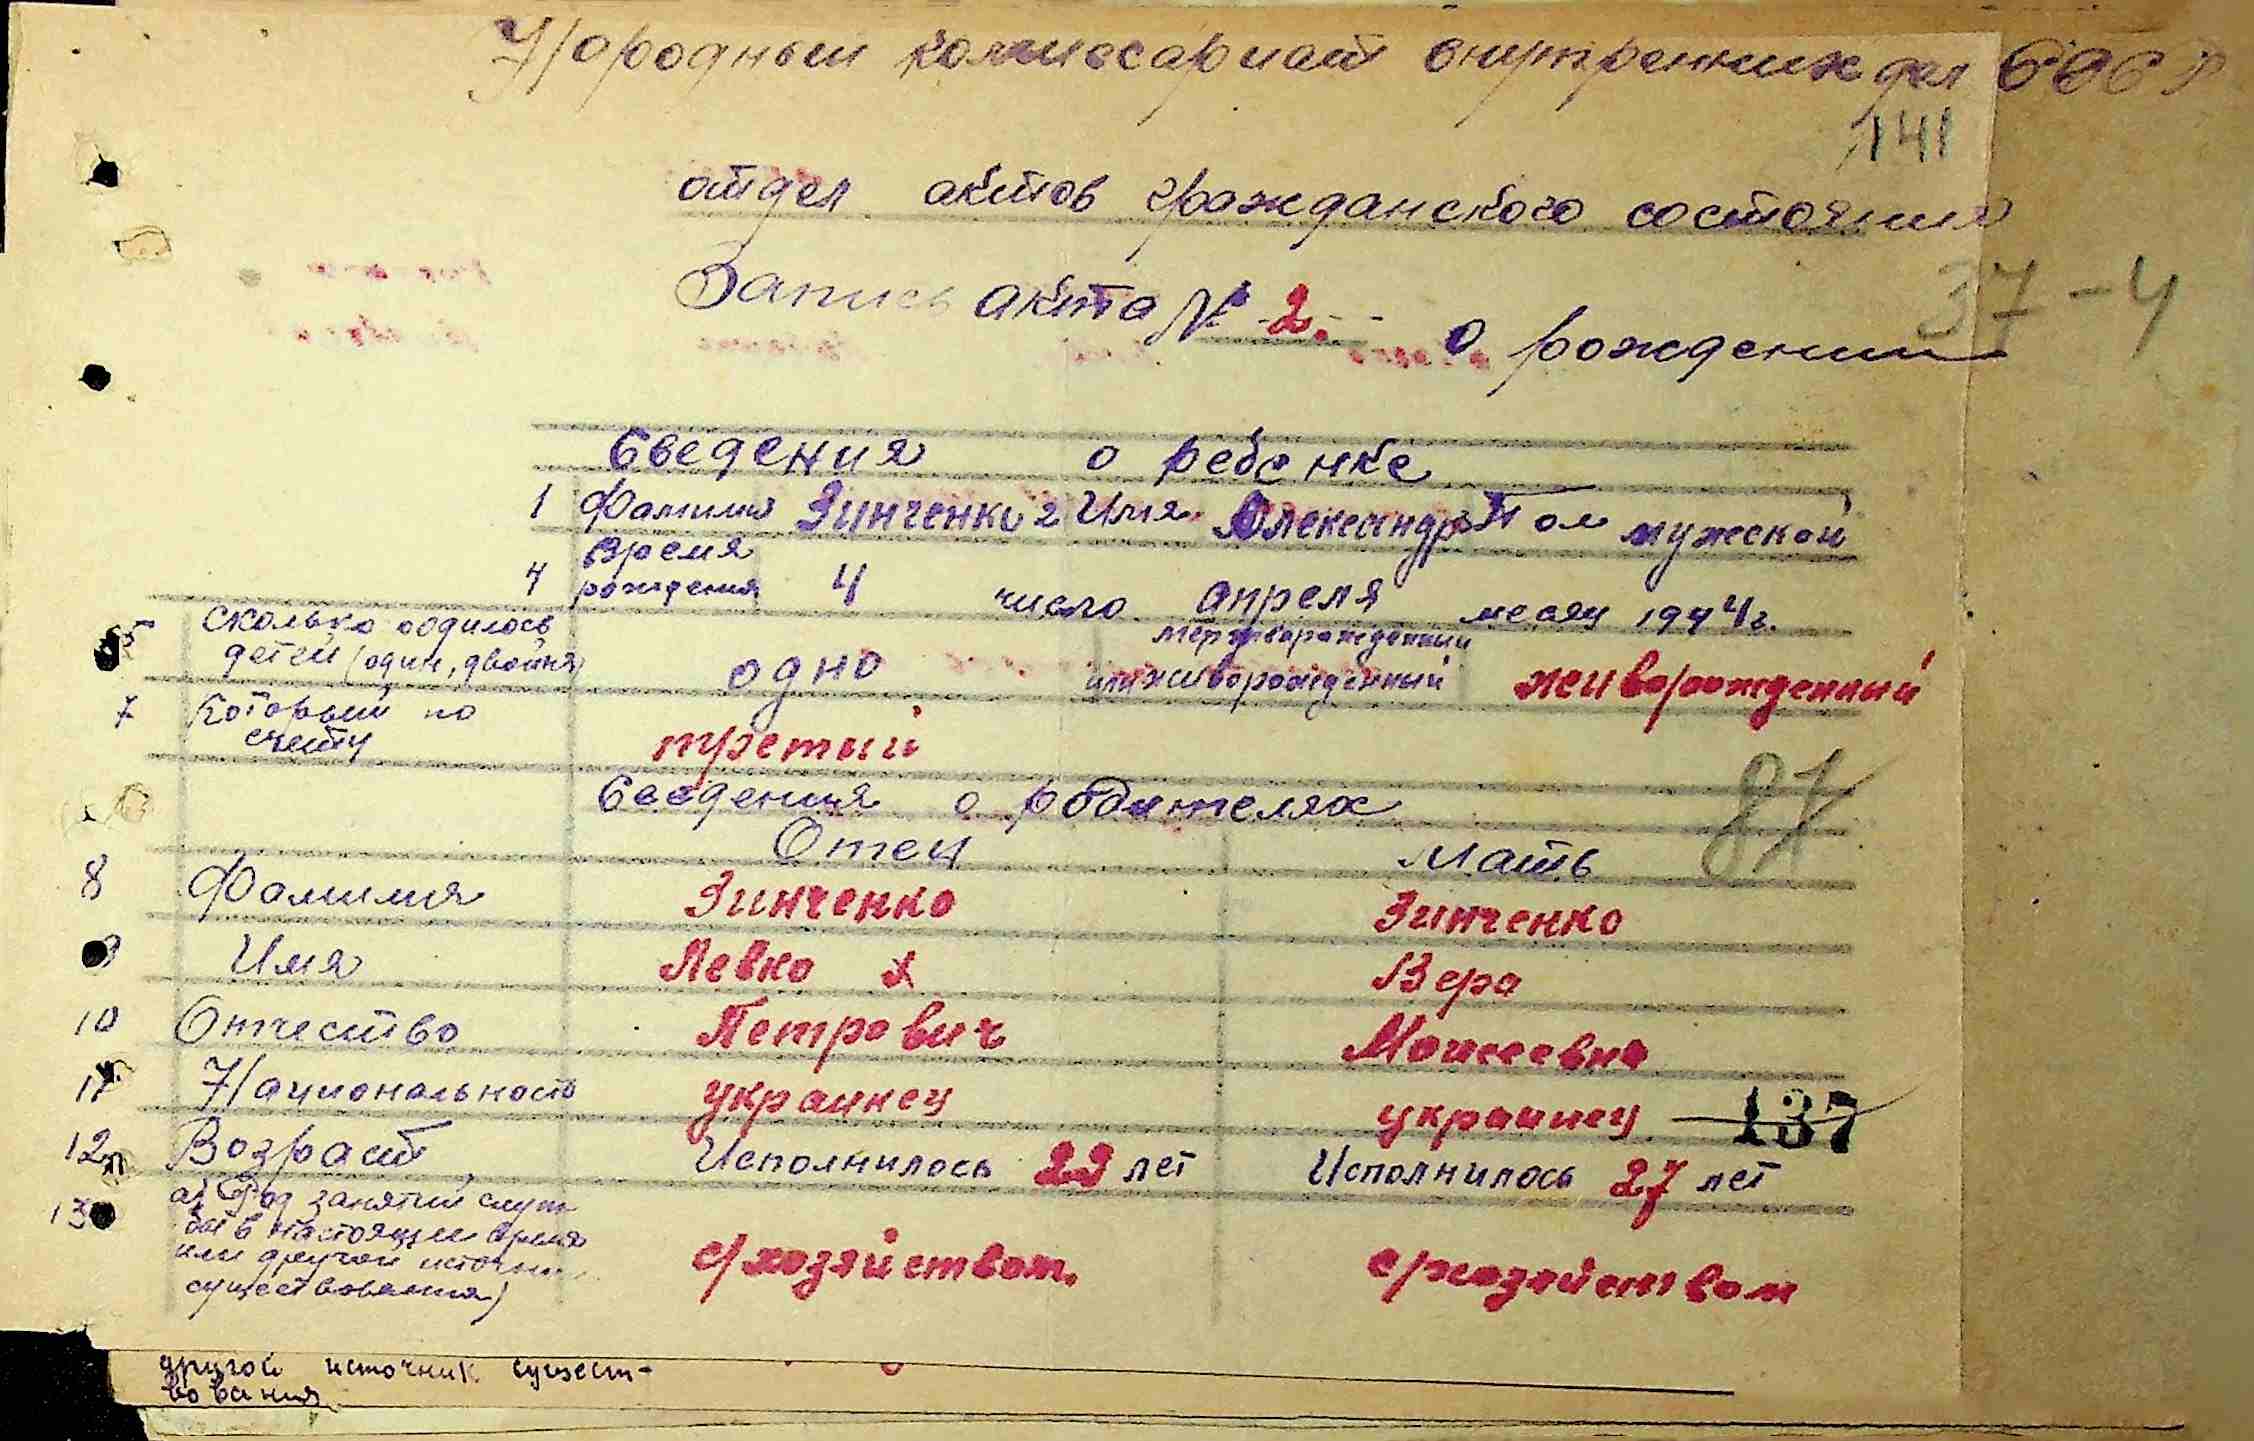 Народный комиссариат внутренних дел СССР
141
отдел актов гражданского состояния
Запись акта № 2. о рождении
37-4
Сведения о ребенке
1 Фамилия Зинченко 2 Имя Александр 3 Пол мужской
4 Время рождения 4 число апреля месяц 1944 г.
5 сколько родилось детей (один, двойня) одно мертворожденный или живорожденный живорожденный
7 Который по счету третий
Сведения о родителях
87
Отец Мать
8 Фамилия Зинченко Зинченко
9 Имя Левко Вера
10 Отчество Петрович Моисеевна
11 Национальность украинец украинец 137
12 Возраст Исполнилось 22 лет Исполнилось 27 лет
13 а) Род занятий служ
бы в настоящее время
или другой источник
существования) с/хозяйством. с/хозяйством
другой источник сущест-
вования